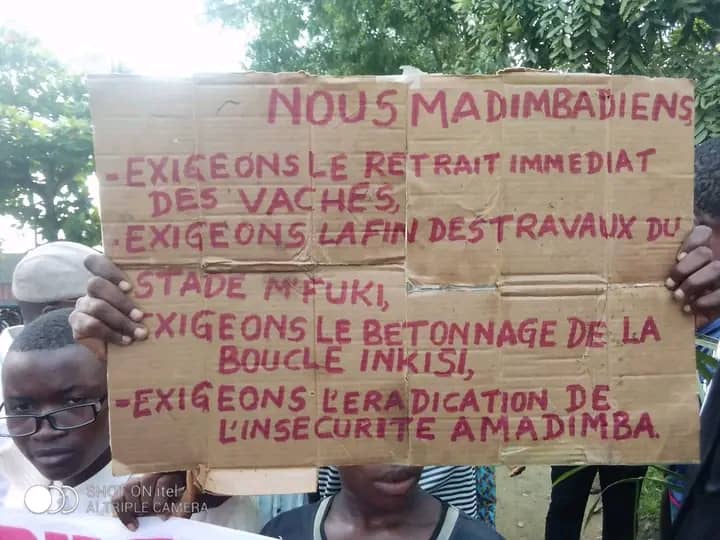 NOUS MADIMBADIENS,
-EXIGEONS LE RETRAIT IMMEDIAT
DES VACHES,
-EXIGEONS LA FIN DES TRAVAUX DU
STADE M'FUKI,
EXIGEONS LE BETONNAGE DE LA
BOUCLE INKISI,
-EXIGEONS L'ERADICATION DE
L'INSECURITE A MADIMBA.
SHOT ON itel
AI TRIPLE CAMERA